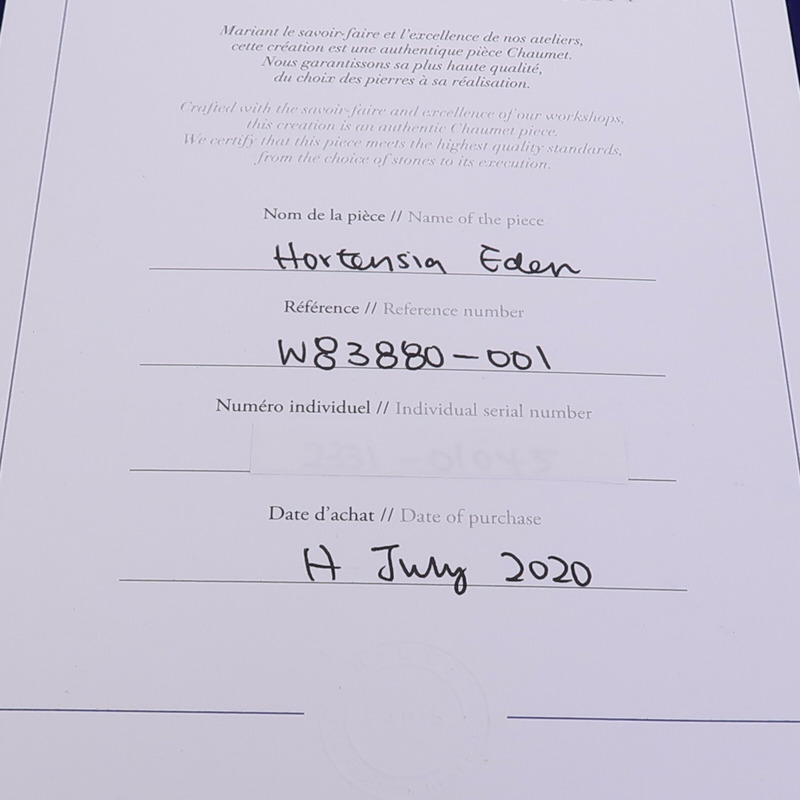 Mariant le savoir-faire et l'excellence de nos ateliers,
cette création est une authentique pièce Chaumet.
Nous garantissons sa plus haute qualité,
du choix des pierres à sa réalisation.
Crafted with the savoir-faire and excellence of our workshops,
this creation is an authentic Chaumet piece.
We certify that this piece meets the highest quality standards,
from the choice of stones to its execution.
Nom de la pièce // Name of the piece
Hortensia Eden
Référence // Reference number
W83880-001
Numéro individuel // Individual serial number
Date d'achat // Date of purchase
July 2020